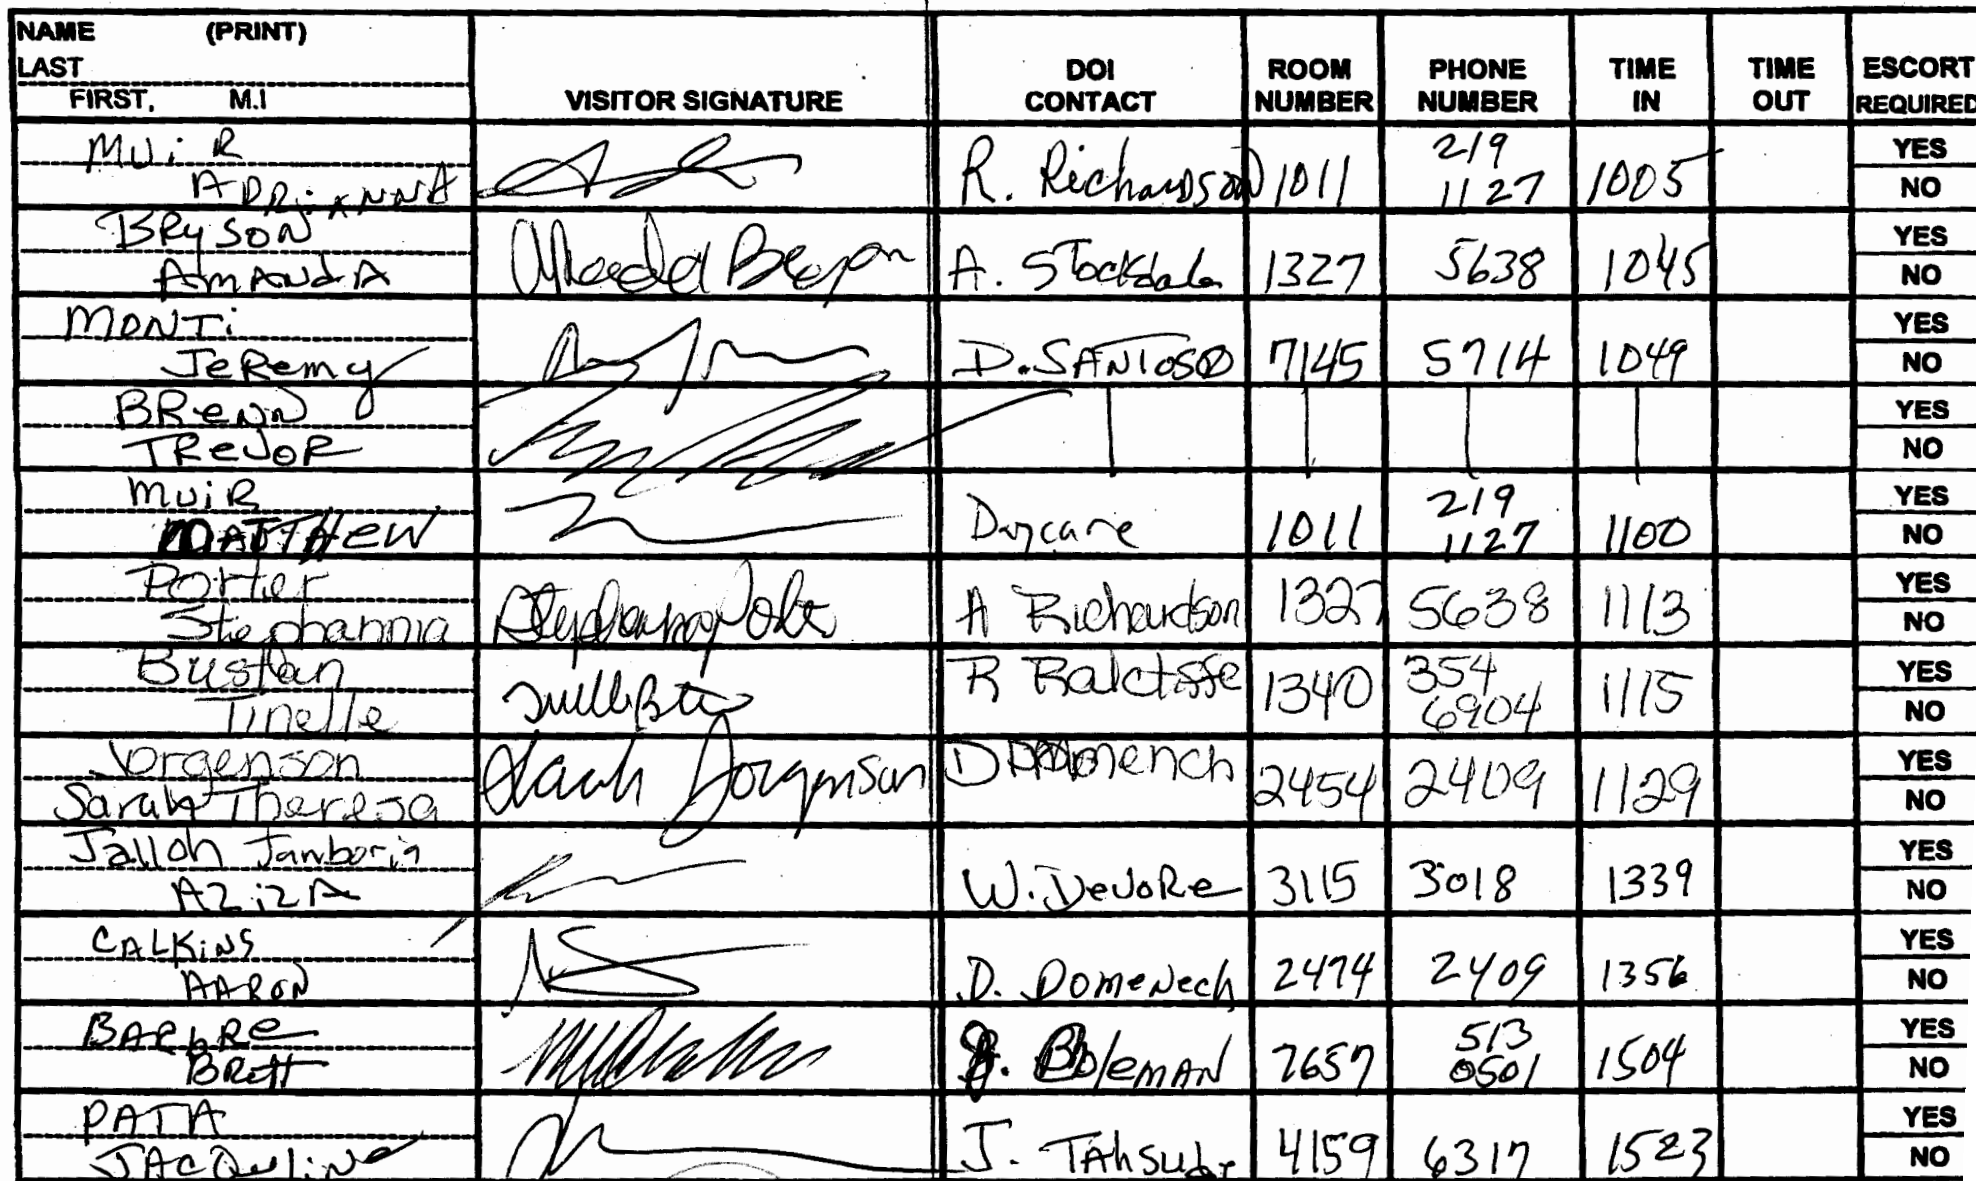 NAME (PRINT)
LAST
FIRST, M.I
VISITOR SIGNATURE
DOI CONTACT
ROOM NUMBER
PHONE NUMBER
TIME IN
TIME OUT
ESCORT REQUIRED
MUIR
ADRIANNA
R. Richardson 1011 219 1127 1005
YES
NO
BRYSON
AMANDA
A. Stockdale 1327 5638 1045
YES
NO
MONTI
Jeremy
D. SANTOSO 7145 5714 1049
YES
NO
BRENN
TREVOR
YES
NO
MUIR
MATTHEW
Daycare 1011 219 1127 1100
YES
NO
Porter
Stephannia
A Richardson 1327 5638 1113
YES
NO
Bustan
Tinelle
R 1340 354 6904 1115
YES
NO
Jorgenson
Sarah Theresa
Sarah Jorgenson
D 2454 2409 1129
YES
NO
Jalloh Jamboria
AZIZA
W. DEVORE 3115 3018 1339
YES
NO
CALKINS
AARON
D. Domenech 2474 2409 1356
YES
NO
BAEHRE
BRETT
Boleman 7657 513 0501 1504
YES
NO
PATA
JACQUELINE
J. 4159 6317 1523
YES
NO